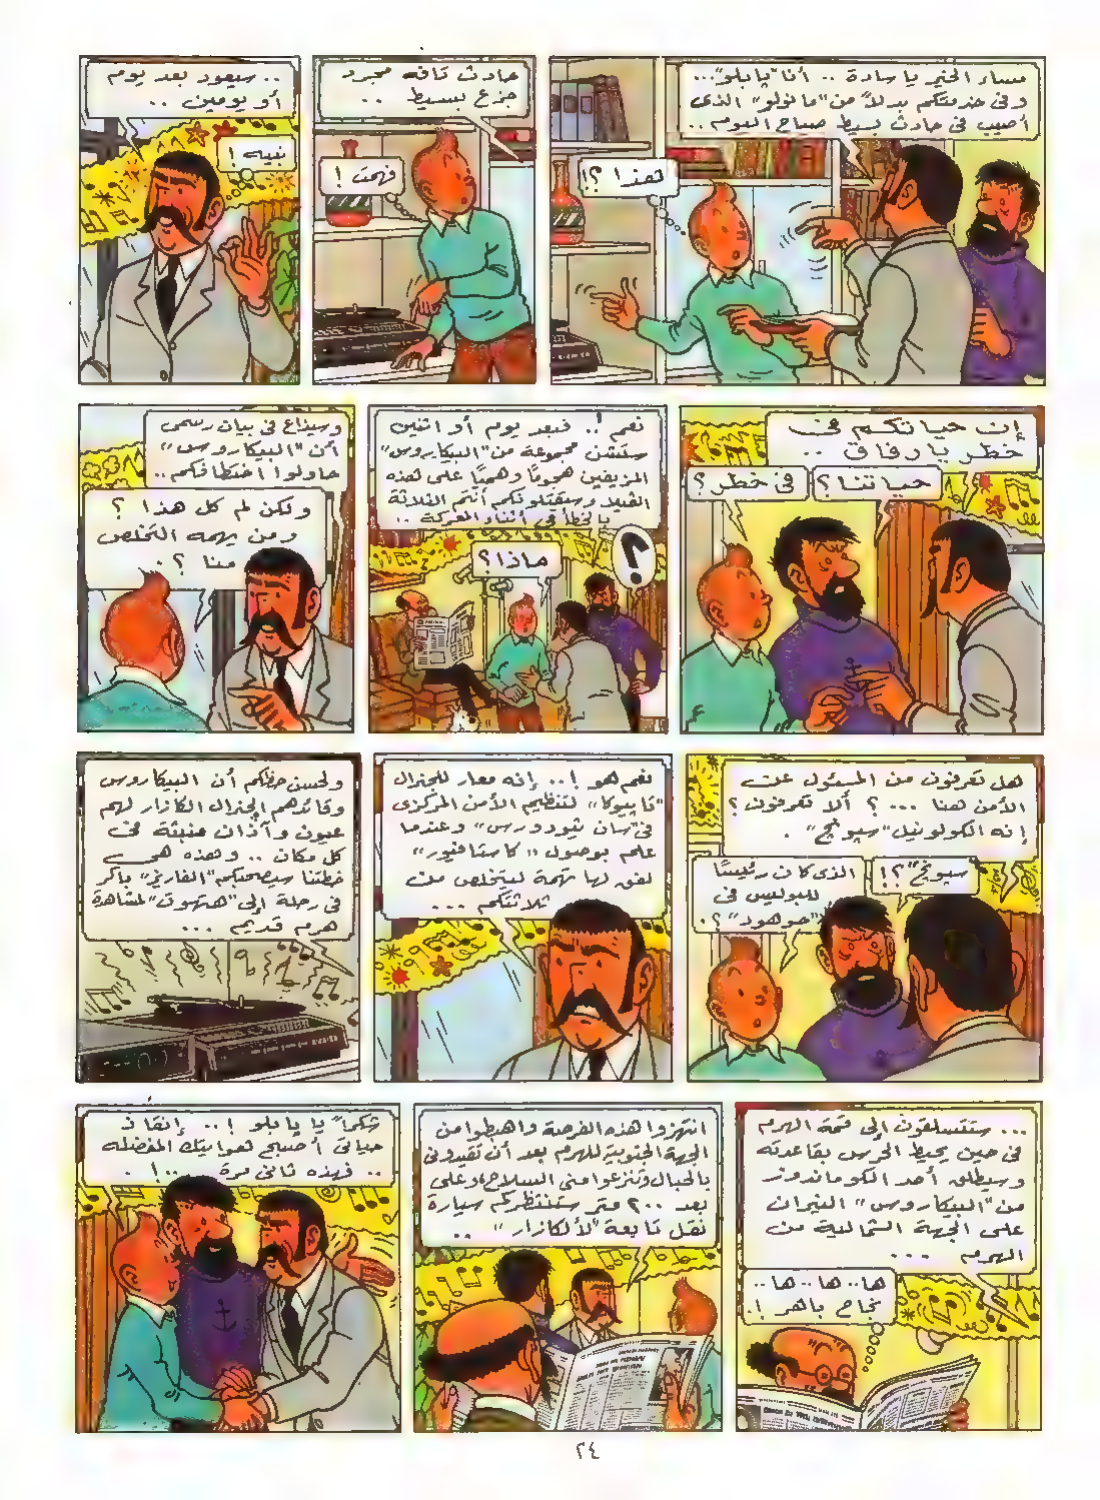 مساء الخير يا سادة .. أنا "پابلو"...
وفى خدمتكم بدلاً من "مانولو" الذى
أصيب فى حادث بسيط صباح اليوم ..
هذا ؟!
حادث تافه مجرد
جزع بسيط ..
فهمت !
.. سيعود بعد يوم
أو يومين ..
نبيه !
إن حياتكم فى
خطر يا رفاق ..
حياتنا ؟
فى خطر ؟
نعم !.. فبعد يوم أو اثنين
ستشن مجموعة من "البيكاروس"
المزيفين هجومًا وهميًا على هذه
الفيلا وسيقتلونكم أنتم الثلاثة
بالخطأ فى أثناء المعركة ..
ماذا ؟
؟
وسيذاع فى بيان رسمى
أن "البيكاروس"
حاولوا اختطافكم ..
ولكن لم كل هذا ؟
ومن يهمه التخلص
منا ؟.
هل تعرفون من المسئول عن
الأمن هنا ... ؟ ألا تعرفون ؟
إنه الكولونيل "سپونچ" .
سپونچ" ؟!
الذى كان رئيسًا
للبوليس فى
"بوهود" ؟.
نعم هو !.. إنه معار للجنرال
"تاپيوكا" لتنظيم الأمن المركزى
فى "سان تيودورس" وعندما
علم بوصول "كاستافيور"
لفق لها تهمة ليتخلص من
ثلاثتكم ...
ولحسن حظكم أن البيكاروس
وقائدهم الجنرال الكازار لهم
عيون وآذان منبثة فى
كل مكان .. وهذه هى
خطتنا سيصحبكم "الفاريز" باكر
فى رحلة إلى "هتهوت" لمشاهدة
هرم قديم ...
... ستتسلقون إلى قمة الهرم
فى حين يحيط الحرس بقاعدته
وسيطلق أحد الكوماندوز
من "البيكاروس" النيران
على الجهة الشمالية من
الهرم ...
ها.. ها.. ها..
نجاح باهر !.
انتهزوا هذه الفرصة واهبطوا من
الجهة الجنوبية للهرم بعد أن تقيدونى
بالحبال وتنزعوا منى السلاح، وعلى
بعد ٢٠٠ متر ستنتظركم سيارة
نقل تابعة "لألكازار" ..
شكرًا يا پابلو !.. إنقاذ
حياتى أصبح هوايتك المفضلة
.. فهذه ثانى مرة ..!.
٢٤